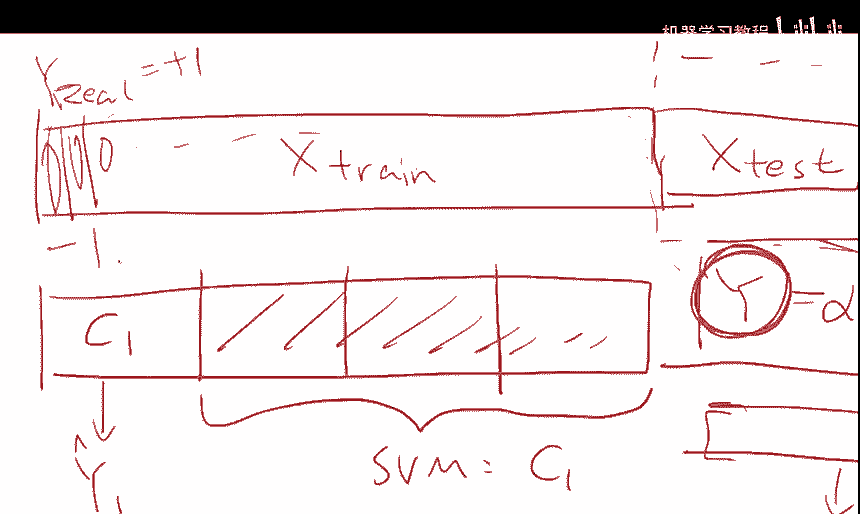 机器学习教程
Yreal = +1
0 0 0 - - X train
X test
-1.
C1
Y = α
Ŷ1
SVM: C1